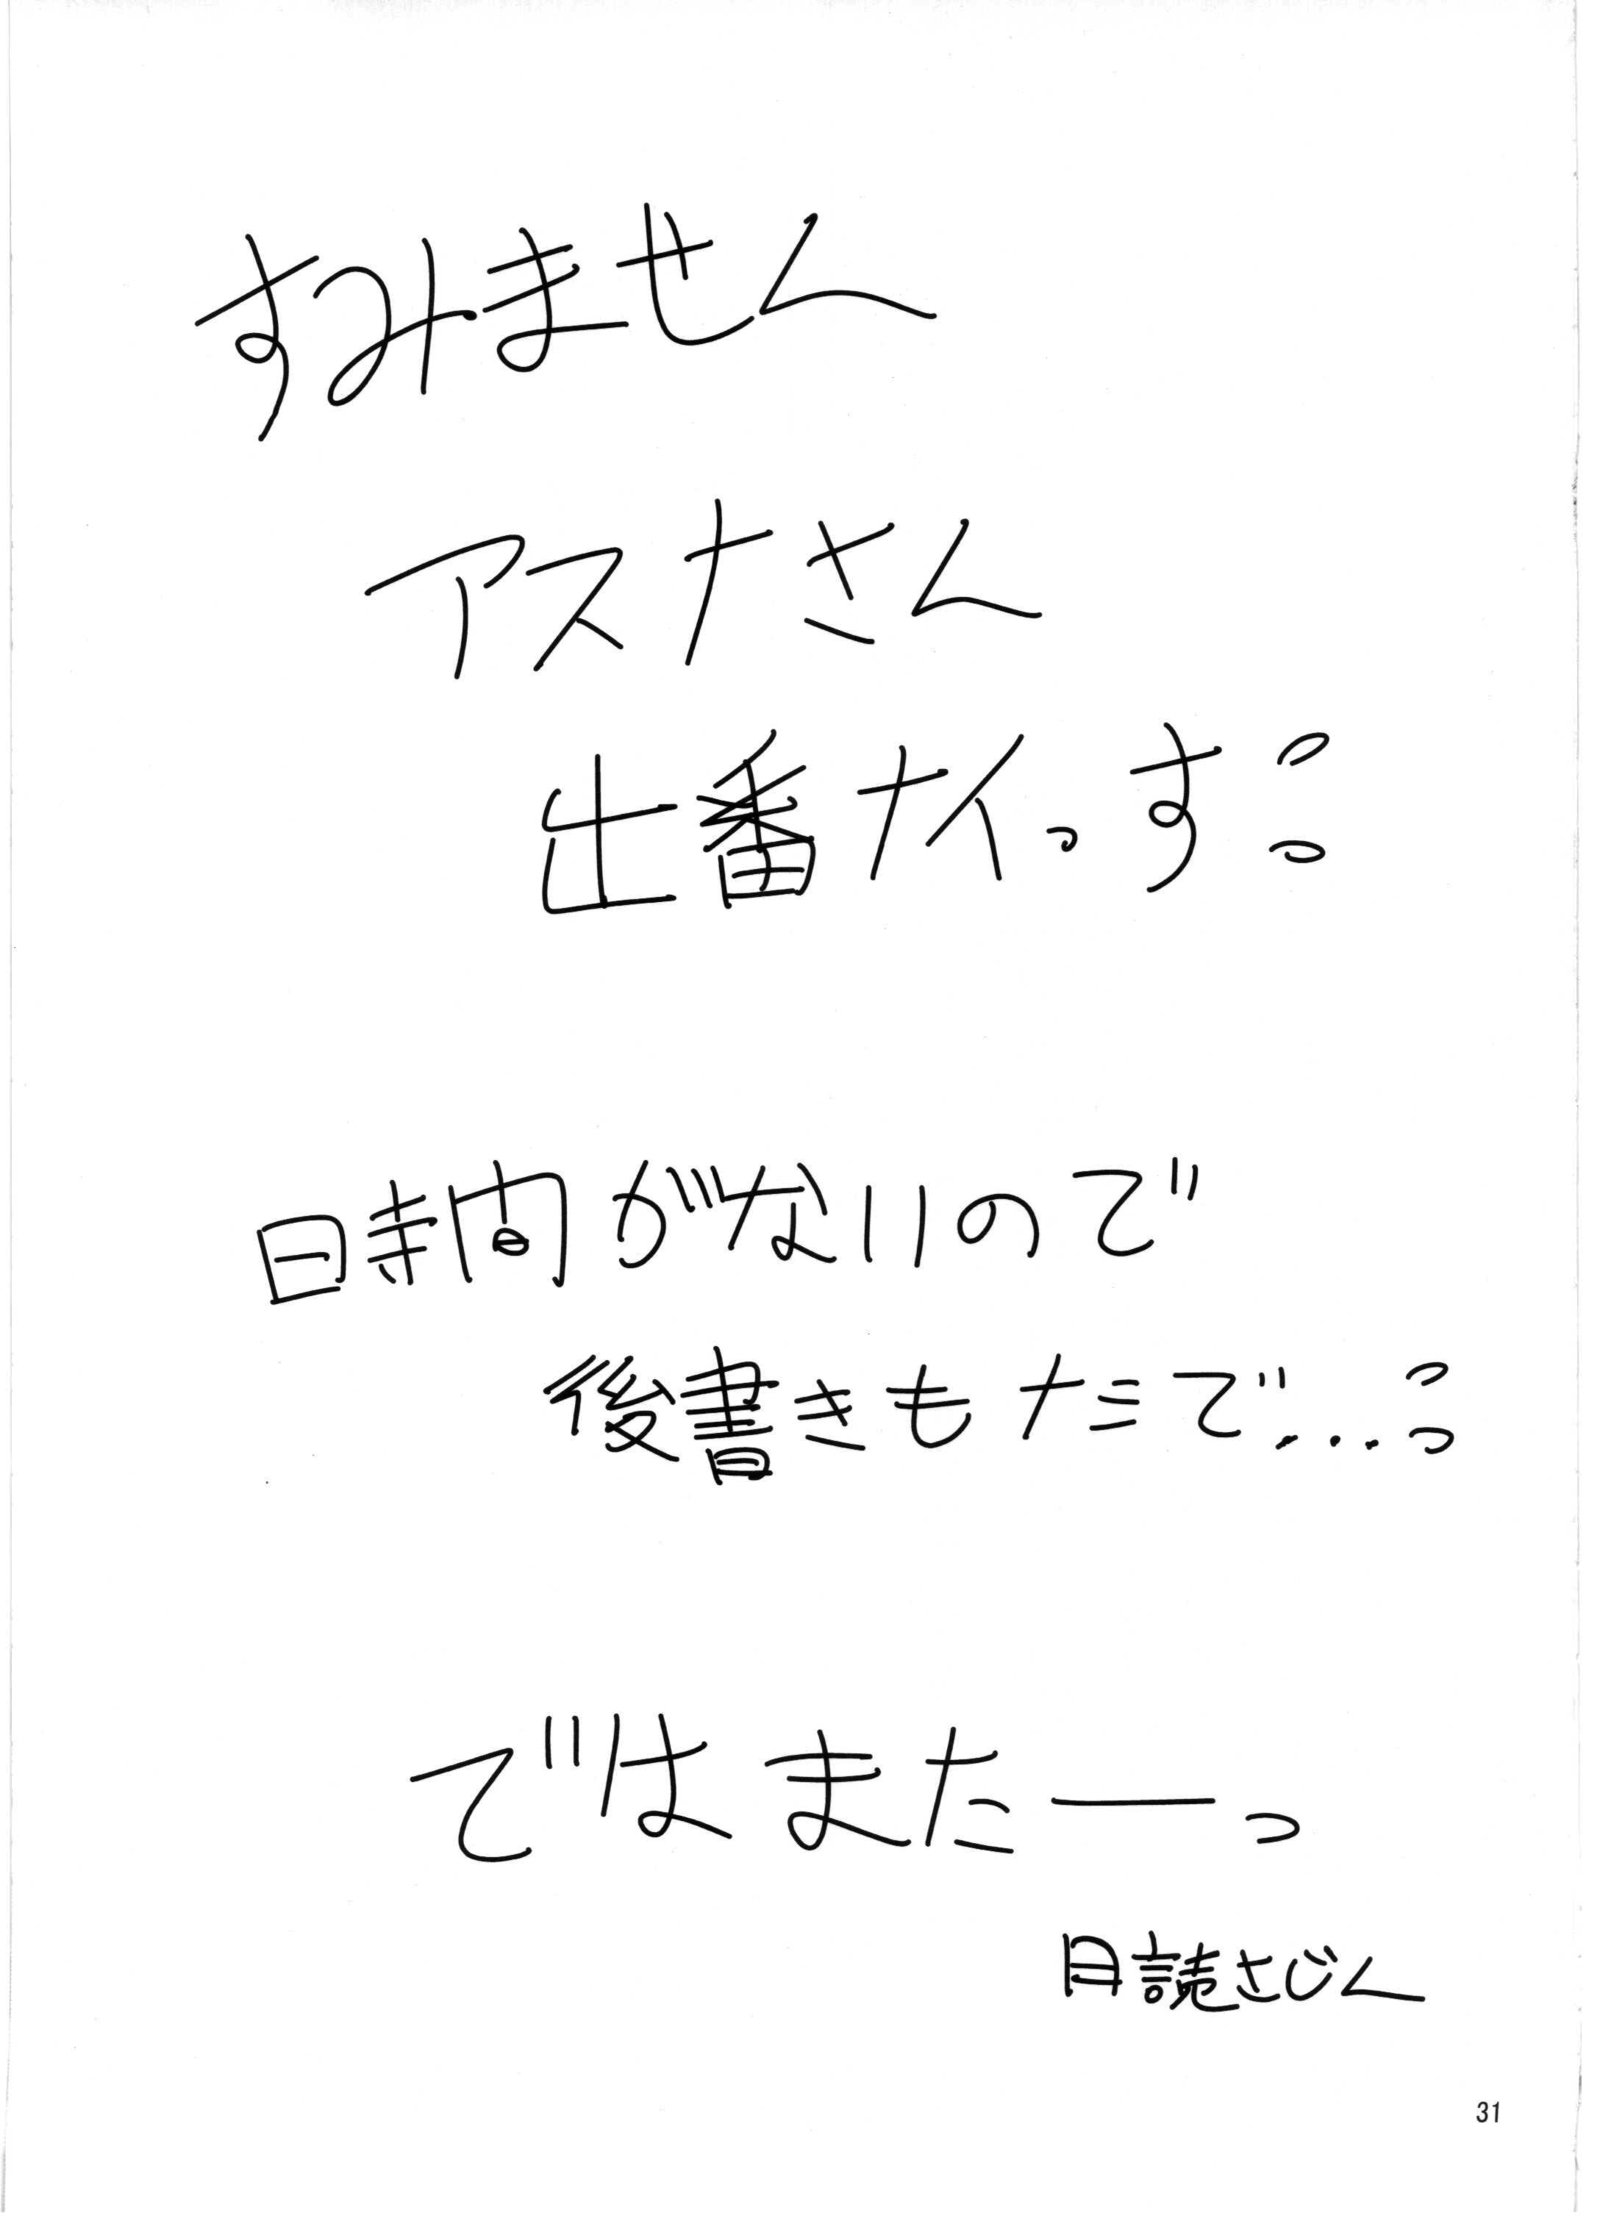 すみません
アスナさん
出番ナイっす
時間がないので
後書きもナミで…
ではまたーっ
月読さじん
31